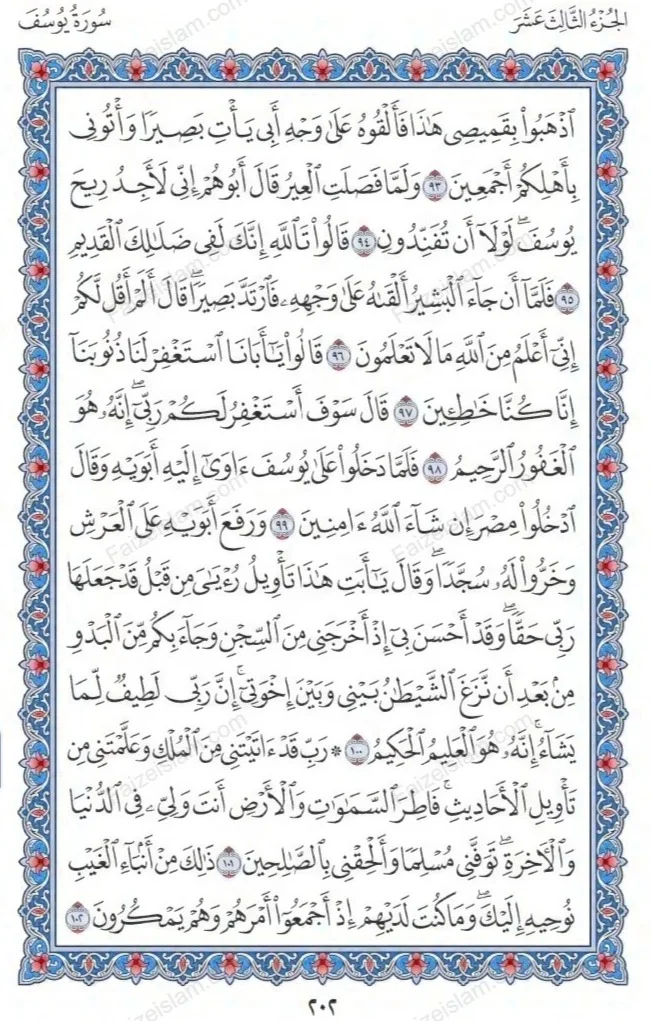 الجُزْءُ الثَّالِثَ عَشَرَ
سُورَةُ يُوسُفَ
ٱذْهَبُواْ بِقَمِيصِى هَٰذَا فَأَلْقُوهُ عَلَىٰ وَجْهِ أَبِى يَأْتِ بَصِيرًا وَأْتُونِى
بِأَهْلِكُمْ أَجْمَعِينَ ٩٣ وَلَمَّا فَصَلَتِ ٱلْعِيرُ قَالَ أَبُوهُمْ إِنِّى لَأَجِدُ رِيحَ
يُوسُفَ ۖ لَوْلَآ أَن تُفَنِّدُونِ ٩٤ قَالُواْ تَٱللَّهِ إِنَّكَ لَفِى ضَلَٰلِكَ ٱلْقَدِيمِ
٩٥ فَلَمَّآ أَن جَآءَ ٱلْبَشِيرُ أَلْقَىٰهُ عَلَىٰ وَجْهِهِۦ فَٱرْتَدَّ بَصِيرًا ۖ قَالَ أَلَمْ أَقُل لَّكُمْ
إِنِّىٓ أَعْلَمُ مِنَ ٱللَّهِ مَا لَا تَعْلَمُونَ ٩٦ قَالُواْ يَٰٓأَبَانَا ٱسْتَغْفِرْ لَنَا ذُنُوبَنَآ
إِنَّا كُنَّا خَٰطِـِٔينَ ٩٧ قَالَ سَوْفَ أَسْتَغْفِرُ لَكُمْ رَبِّىٓ ۖ إِنَّهُۥ هُوَ
ٱلْغَفُورُ ٱلرَّحِيمُ ٩٨ فَلَمَّا دَخَلُواْ عَلَىٰ يُوسُفَ ءَاوَىٰٓ إِلَيْهِ أَبَوَيْهِ وَقَالَ
ٱدْخُلُواْ مِصْرَ إِن شَآءَ ٱللَّهُ ءَامِنِينَ ٩٩ وَرَفَعَ أَبَوَيْهِ عَلَى ٱلْعَرْشِ
وَخَرُّواْ لَهُۥ سُجَّدًا ۖ وَقَالَ يَٰٓأَبَتِ هَٰذَا تَأْوِيلُ رُءْيَٰىَ مِن قَبْلُ قَدْ جَعَلَهَا
رَبِّى حَقًّا ۖ وَقَدْ أَحْسَنَ بِىٓ إِذْ أَخْرَجَنِى مِنَ ٱلسِّجْنِ وَجَآءَ بِكُم مِّنَ ٱلْبَدْوِ
مِنۢ بَعْدِ أَن نَّزَغَ ٱلشَّيْطَٰنُ بَيْنِى وَبَيْنَ إِخْوَتِىٓ ۚ إِنَّ رَبِّى لَطِيفٌ لِّمَا
يَشَآءُ ۚ إِنَّهُۥ هُوَ ٱلْعَلِيمُ ٱلْحَكِيمُ ١٠٠ * رَبِّ قَدْ ءَاتَيْتَنِى مِنَ ٱلْمُلْكِ وَعَلَّمْتَنِى مِن
تَأْوِيلِ ٱلْأَحَادِيثِ ۚ فَاطِرَ ٱلسَّمَٰوَٰتِ وَٱلْأَرْضِ أَنتَ وَلِىِّۦ فِى ٱلدُّنْيَا
وَٱلْءَاخِرَةِ ۖ تَوَفَّنِى مُسْلِمًا وَأَلْحِقْنِى بِٱلصَّٰلِحِينَ ١٠١ ذَٰلِكَ مِنْ أَنۢبَآءِ ٱلْغَيْبِ
نُوحِيهِ إِلَيْكَ ۖ وَمَا كُنتَ لَدَيْهِمْ إِذْ أَجْمَعُوٓاْ أَمْرَهُمْ وَهُمْ يَمْكُرُونَ ١٠٢
٢٠٢
Faizeislam.com